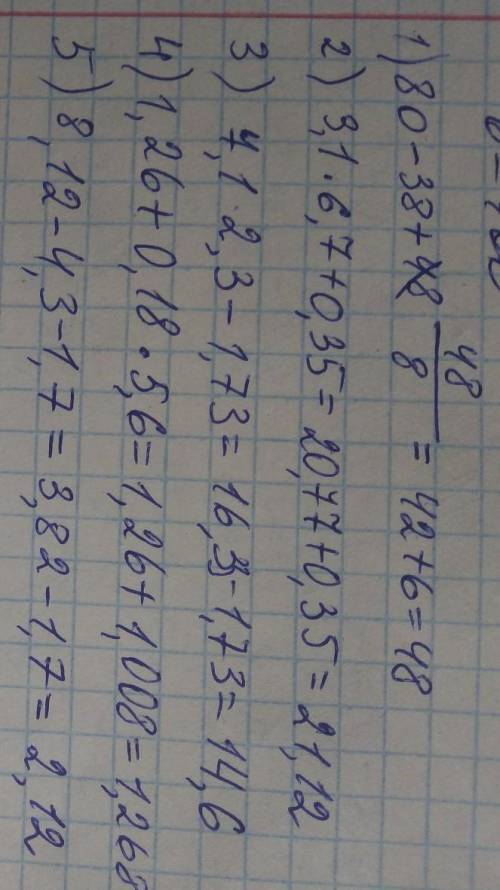 1) 80 - 38 + 48/8 = 42 + 6 = 48
2) 3,1 · 6,7 + 0,35 = 20,77 + 0,35 = 21,12
3) 4,1 · 2,3 - 1,73 = 16,33 - 1,73 = 14,6
4) 1,26 + 0,18 · 5,6 = 1,26 + 1,008 = 1,268
5) 8,12 - 4,3 - 1,7 = 3,82 - 1,7 = 2,12